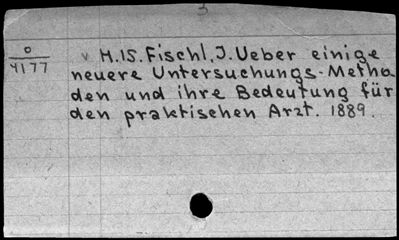 3
O
4177
v H.15. Fischl, J. Ueber einige
neuere Untersuchungs-Metho
den und ihre Bedeutung für
den praktischen Arzt. 1889.